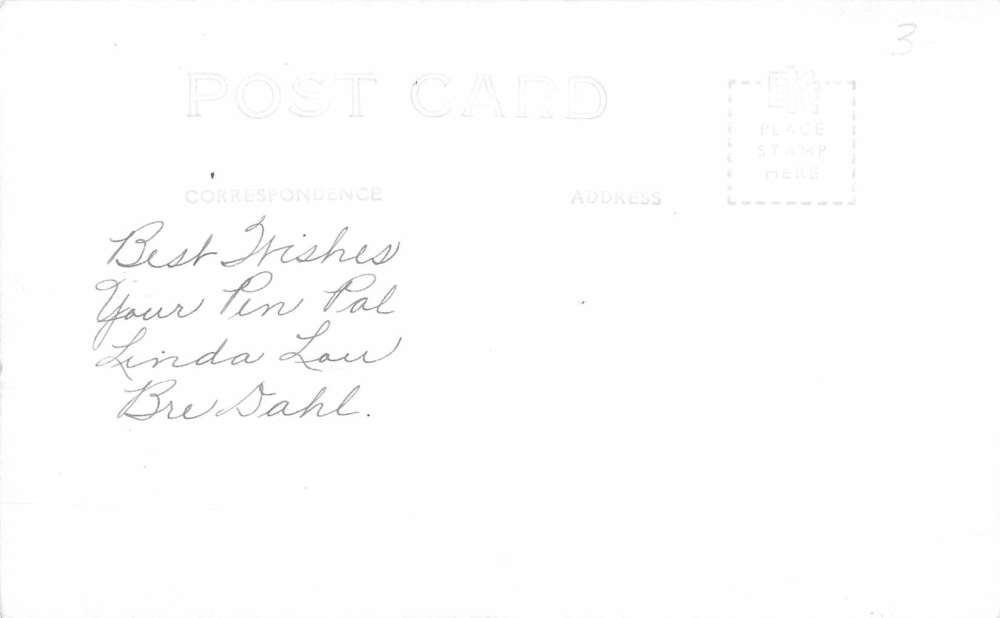 3
POST CARD
EKC
PLACE
STAMP
HERE
CORRESPONDENCE
ADDRESS
Best Wishes
Your Pen Pal
Linda Lou
Bre Dahl.